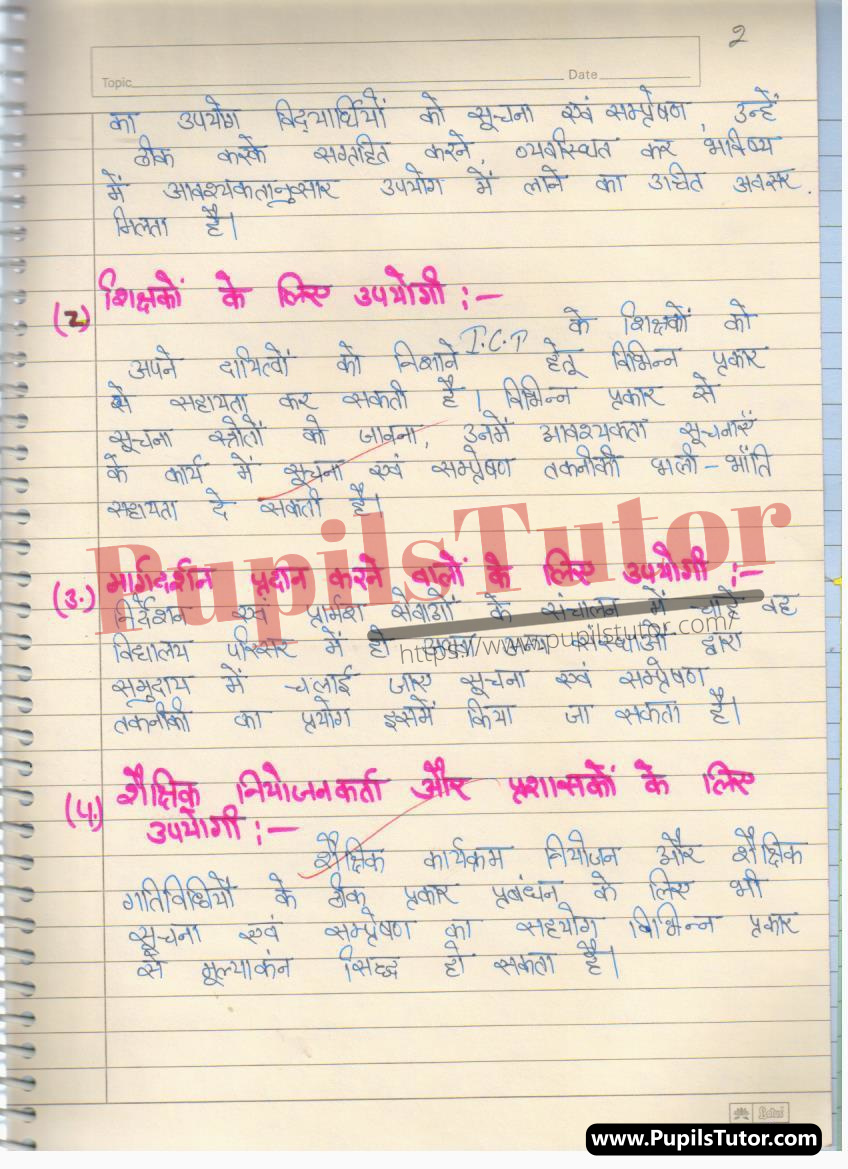 2
Topic Date
का उपयोग विद्यार्थियों को सूचना एवं सम्प्रेषण, उन्हें
ठीक करके सग्रहित करने, व्यवस्थित कर भविष्य
में आवश्यकतानुसार उपयोग में लाने का उचित अवसर.
मिलता है।
(2) शिक्षकों के लिए उपयोगी :-
I.C.T के शिक्षकों को
अपने दायित्वों को निभाने हेतू विभिन्न प्रकार
से सहायता कर सकती है। विभिन्न प्रकार से
सूचना स्त्रोतों को जानना, उनमें आवश्यकता सूचनाएँ
के कार्य में सूचना एवं सम्प्रेषण तकनीकी भली-भाँति
सहायता दे सकती है।
PupilsTutor
(3.) मार्गदर्शन प्रदान करने वालों के लिए उपयोगी :-
निर्देशन एवं प्रार्मश सेवाओं के संचालन में चाहे वह
विद्यालय परिसर में हो अथवा अन्य संस्थाओं द्वारा
https://www.pupilstutor.com/
समुदाय में चलाई जाए सूचना एवं सम्प्रेषण
तकनीकी का प्रयोग इसमें किया जा सकता है।
(4.) शैक्षिक नियोजनकर्ता और प्रशासकों के लिए
उपयोगी :-
शैक्षिक कार्यक्रम नियोजन और शैक्षिक
गतिविधियों के ठीक प्रकार प्रबंधन के लिए भी
सूचना एवं सम्प्रेषण का सहयोग विभिन्न प्रकार
से मूल्याकंन सिद्ध हो सकता है।
www.PupilsTutor.com